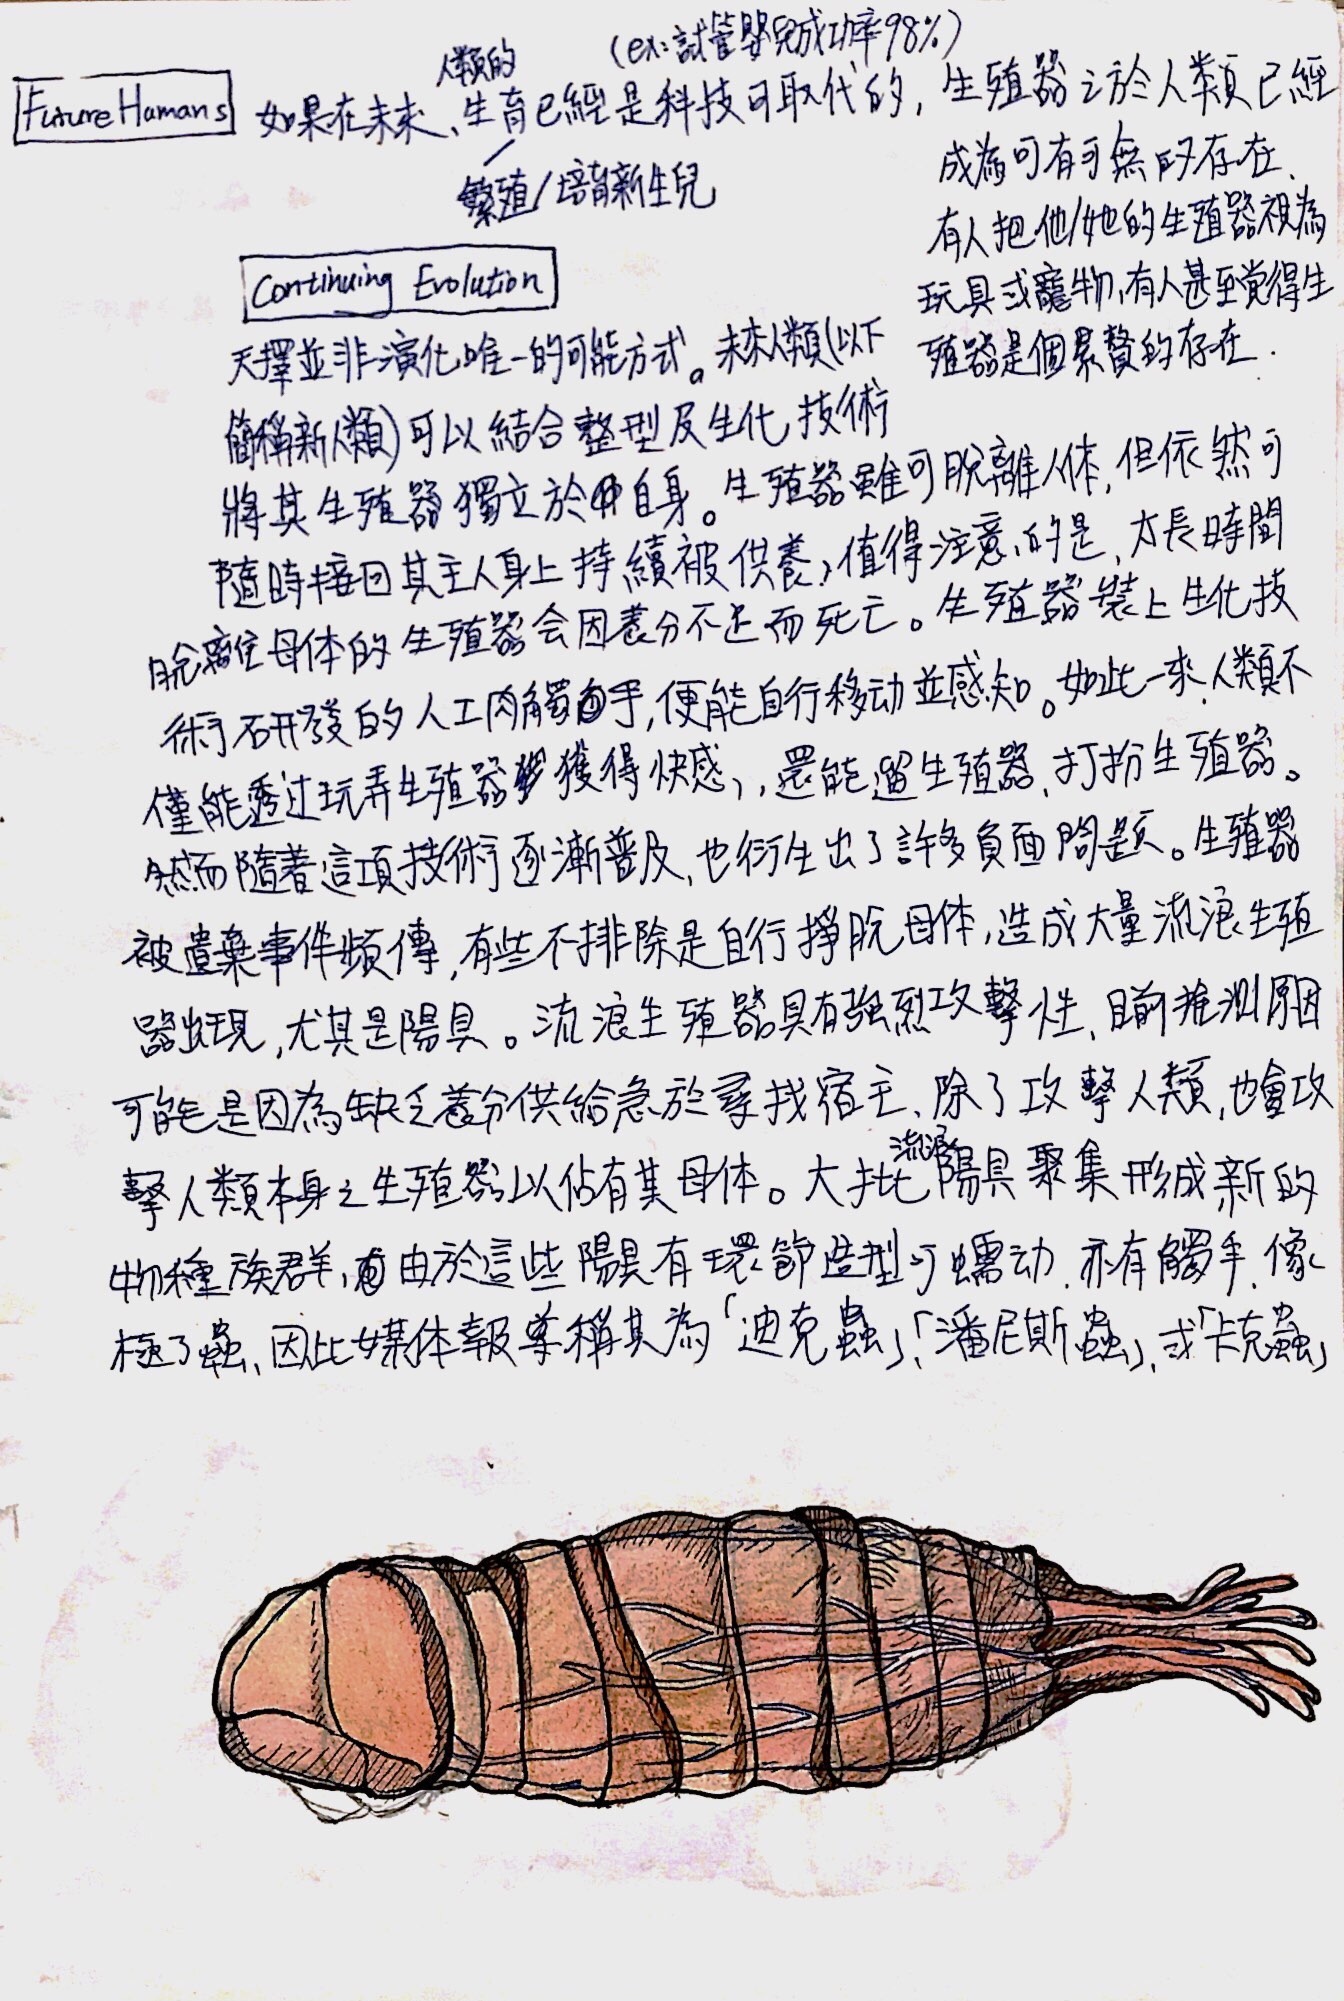 Future Humans
人類的
(ex:試管嬰兒成功率98%)
如果在未來、生育已經是科技可取代的,
繁殖/培育新生兒
生殖器之於人類已經
成為可有可無的存在、
有人把他/她的生殖器視為
玩具或寵物,有人甚至覚得生
殖器是個累贅的存在.
Continuing Evolution
天擇並非演化唯一的可能方式。未來人類(以下
簡稱新人類)可以結合整型及生化技術
將其生殖器獨立於自身。生殖器雖可脫離人体,但依然可
隨時接回其主人身上持續被供養,值得注意的是,太長時間
脫離母体的生殖器会因養分不足而死亡。生殖器裝上生化技
術研發的人工肉觸手,便能自行移动並感知。如此一來,人類不
僅能透过玩弄生殖器獲得快感,,還能遛生殖器、打扮生殖器。
然而隨著這項技術逐漸普及、也衍生出了許多負面問題。生殖器
被遺棄事件頻傳,有些不排除是自行掙脫母体,造成大量流浪生殖
器出現,尤其是陽具。流浪生殖器具有強烈攻擊性、目前推測原因
可能是因為缺乏養分供給急於尋找宿主、除了攻擊人類,也會攻
擊人類本身之生殖器以佔有其母体。大批流浪陽具聚集形成新的
物種族群,由於這些陽具有環節造型可蠕动、亦有觸手、像
極了蟲、因此媒体報導稱其為「迪克蟲」、「潘尼斯蟲」、或「卡克蟲」